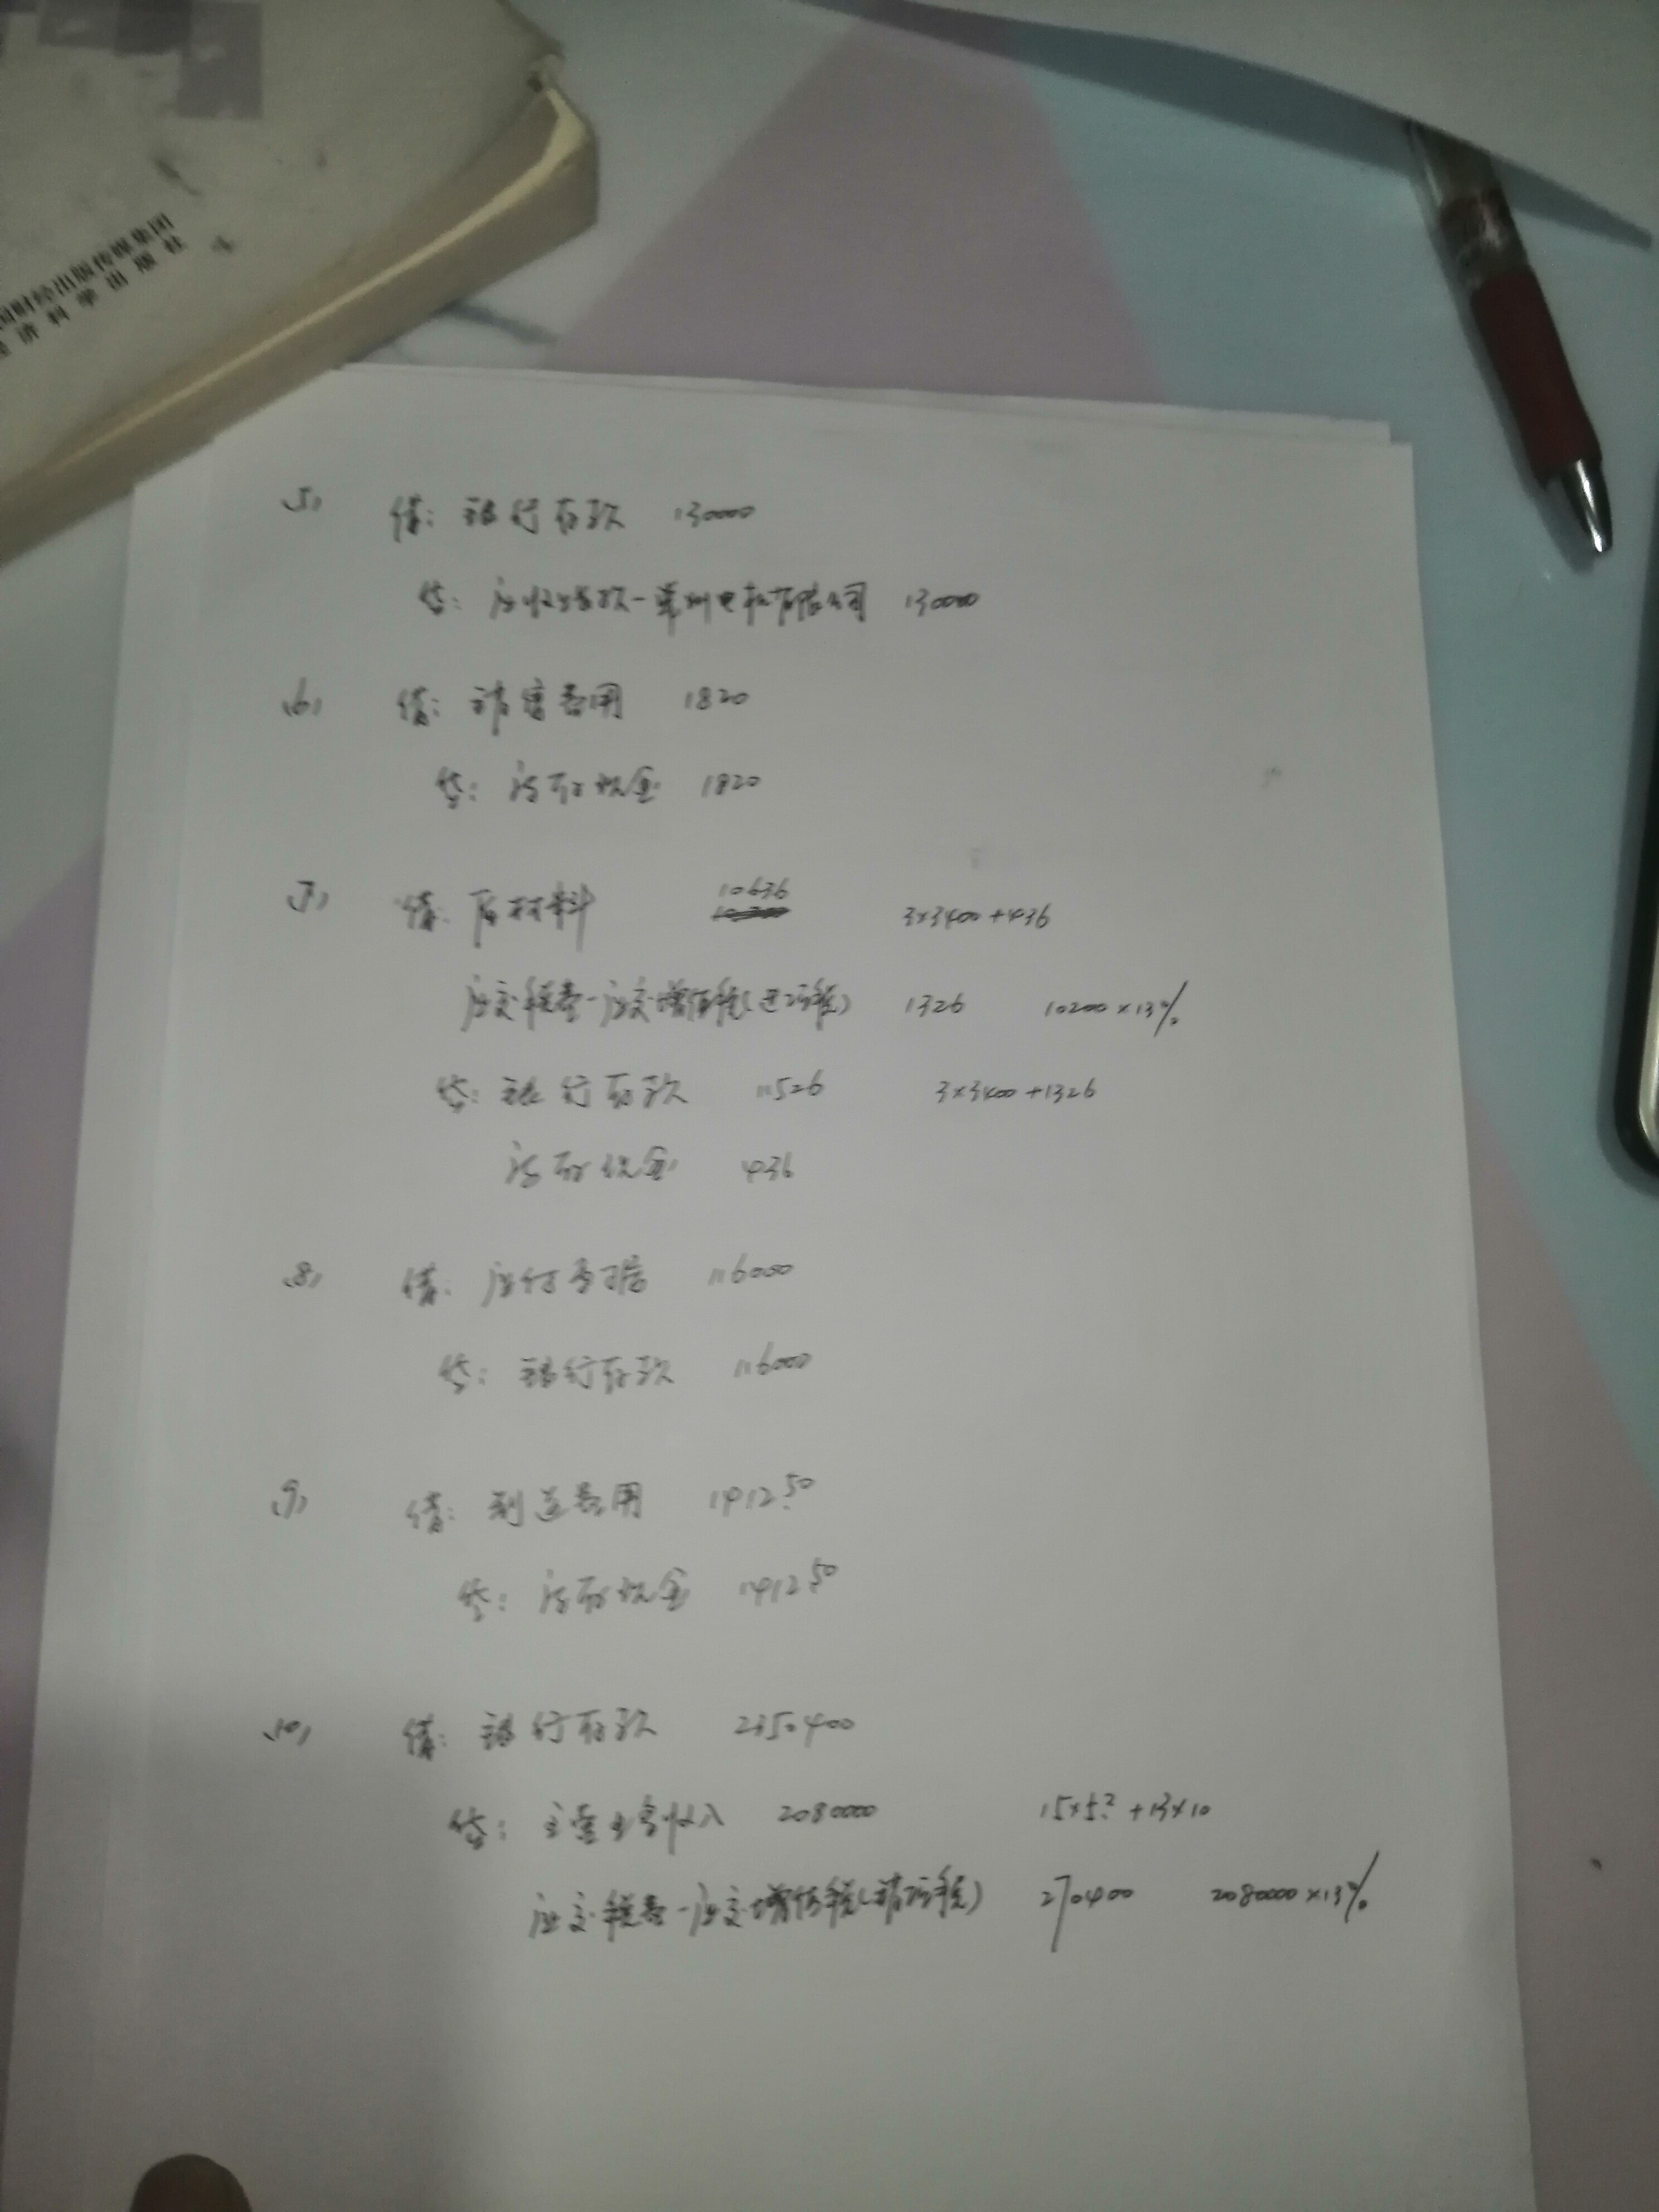 国财经出版传媒集团
济科学出版社
(5) 借：银行存款 130000
贷：应收账款-单州电机有限公司 130000
(6) 借：销售费用 1820
贷：库存现金 1820
(7) 借：原材料 10636 3×3400+436
应交税费-应交增值税(进项税) 1326 10200×13%
贷：银行存款 11526 3×3400+1326
库存现金 436
(8) 借：应付票据 116000
贷：银行存款 116000
(9) 借：制造费用 1412.50
贷：库存现金 1412.50
(10) 借：银行存款 2350400
贷：主营业务收入 2080000 15×52+13×10
应交税费-应交增值税(销项税) 270400 2080000×13%